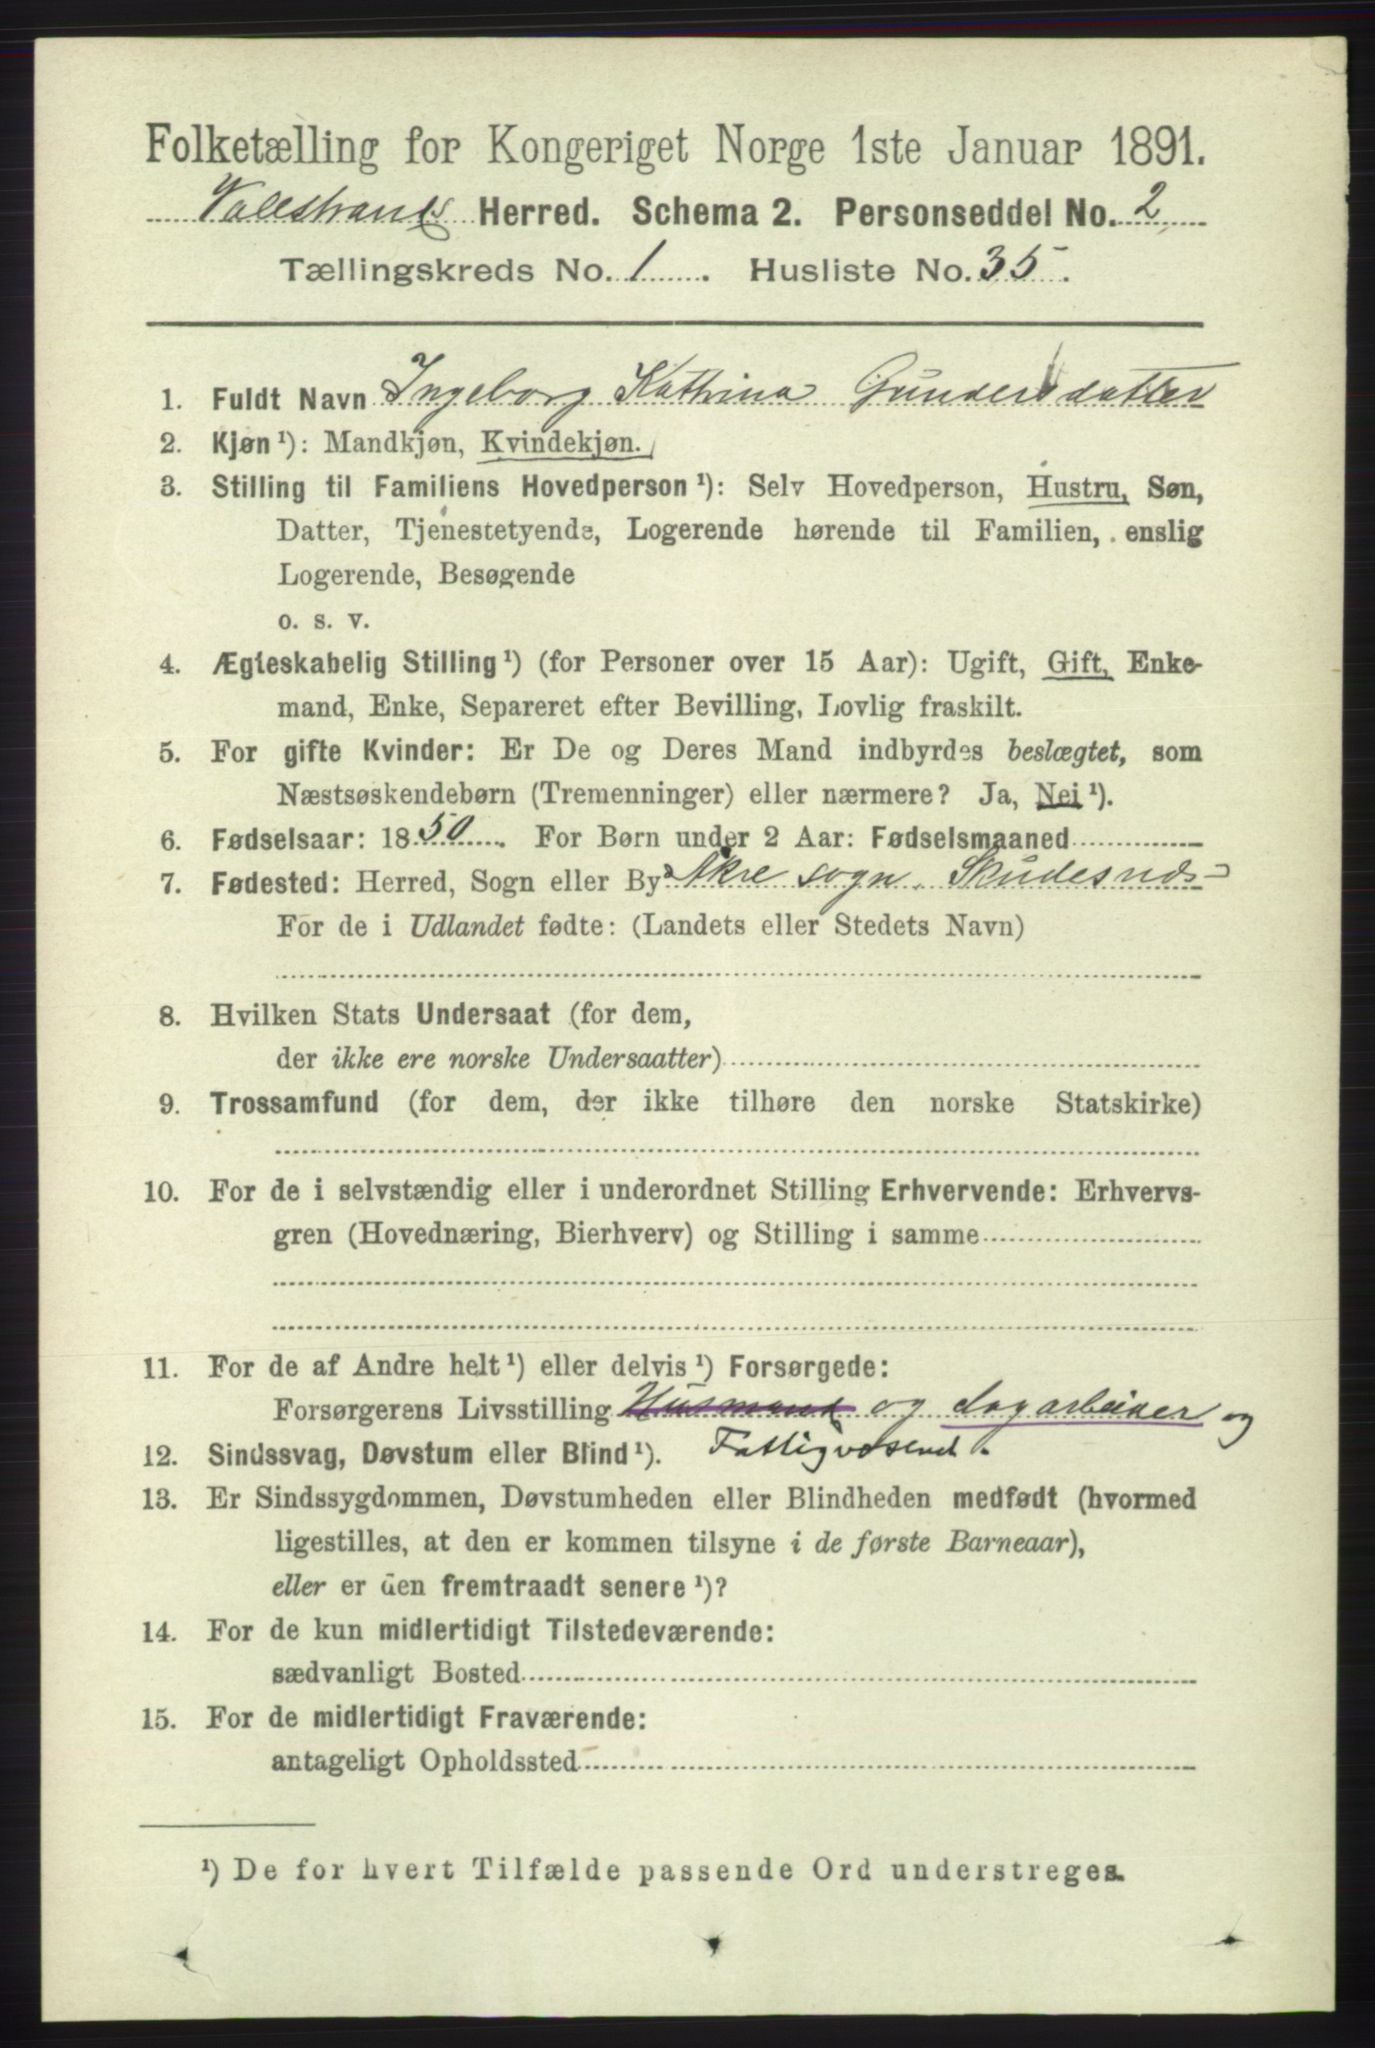 Folketælling for Kongeriget Norge 1ste Januar 1891.
Valestrands Herred. Schema 2. Personseddel No. 2
Tællingskreds No. 1. Husliste No. 35.
1. Fuldt Navn Ingeborg Kathrina Gundersdatter
2. Kjøn¹): Mandkjøn, Kvindekjøn.
3. Stilling til Familiens Hovedperson¹): Selv Hovedperson, Hustru, Søn,
Datter, Tjenestetyende, Logerende hørende til Familien, enslig
Logerende, Besøgende
o. s. v.
4. Ægteskabelig Stilling¹) (for Personer over 15 Aar): Ugift, Gift, Enke-
mand, Enke, Separeret efter Bevilling, Lovlig fraskilt.
5. For gifte Kvinder: Er De og Deres Mand indbyrdes beslægtet, som
Næstsøskendebørn (Tremenninger) eller nærmere? Ja, Nei¹).
6. Fødselsaar: 1850. For Børn under 2 Aar: Fødselsmaaned
7. Fødested: Herred, Sogn eller By Akre sogn, Skudesnds
For de i Udlandet fødte: (Landets eller Stedets Navn)
8. Hvilken Stats Undersaat (for dem,
der ikke ere norske Undersaatter)
9. Trossamfund (for dem, der ikke tilhøre den norske Statskirke)
10. For de i selvstændig eller i underordnet Stilling Erhvervende: Erhvervs-
gren (Hovednæring, Bierhverv) og Stilling i samme
11. For de af Andre helt¹) eller delvis¹) Forsørgede:
Forsørgerens Livsstilling Husmand og dagarbeider og
12. Sindssvag, Døvstum eller Blind¹). Fattigvæsenet.
13. Er Sindssygdommen, Døvstumheden eller Blindheden medfødt (hvormed
ligestilles, at den er kommen tilsyne i de første Barneaar),
eller er den fremtraadt senere¹)?
14. For de kun midlertidigt Tilstedeværende:
sædvanligt Bosted
15. For de midlertidigt Fraværende:
antageligt Opholdssted
¹) De for hvert Tilfælde passende Ord understreges.